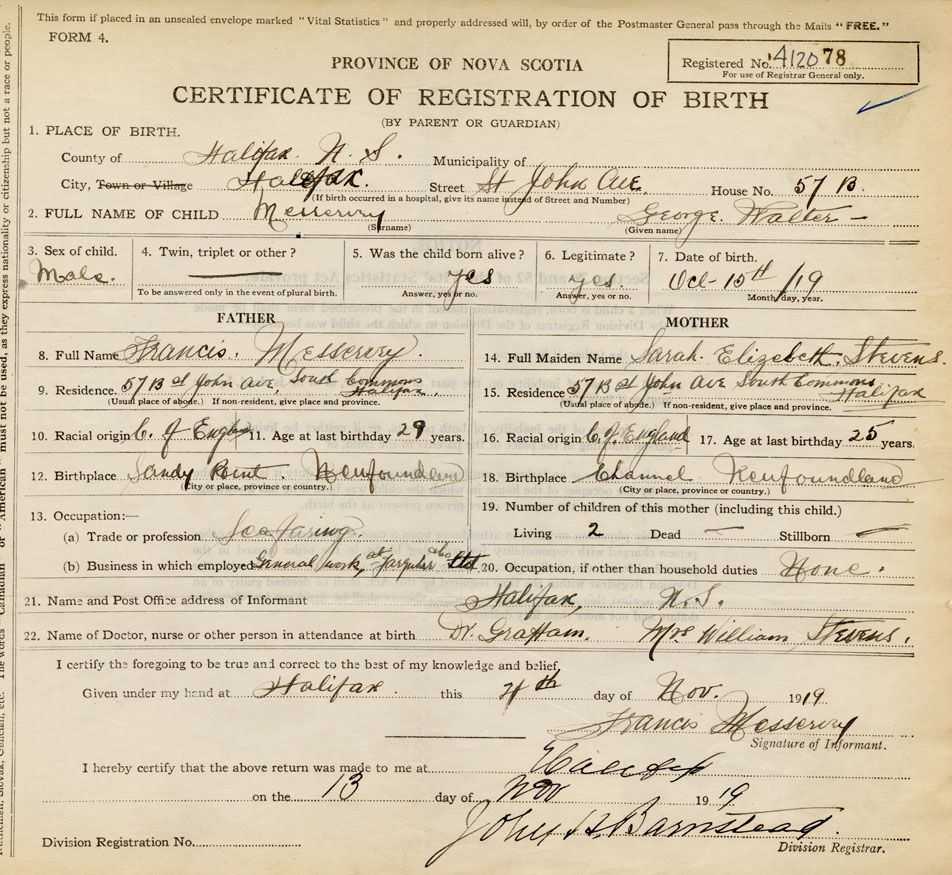 This form if placed in an unsealed envelope marked "Vital Statistics" and properly addressed will, by order of the Postmaster General pass through the Mails "FREE."
FORM 4.
Registered No. 412078
For use of Registrar General only.
PROVINCE OF NOVA SCOTIA
CERTIFICATE OF REGISTRATION OF BIRTH
(BY PARENT OR GUARDIAN)
1. PLACE OF BIRTH.
County of Halifax N. S. Municipality of
City, Town or Village Halifax. Street St John Ave. House No. 57 B.
(If birth occurred in a hospital, give its name instead of Street and Number)
2. FULL NAME OF CHILD Messervey George Walter —
(Surname) (Given name)
3. Sex of child. 4. Twin, triplet or other? 5. Was the child born alive? 6. Legitimate? 7. Date of birth.
Male. yes yes. Oct- 15th /19
To be answered only in the event of plural birth. Answer, yes or no. Answer, yes or no. Month, day, year.
FATHER MOTHER
8. Full Name Francis. Messervey. 14. Full Maiden Name Sarah. Elizabeth. Stevens.
9. Residence. 57 B St John Ave, South Commons Halifax. 15. Residence 57 B St John Ave South Commons Halifax
(Usual place of abode.) If non-resident, give place and province. (Usual place of abode.) If non-resident, give place and province.
10. Racial origin C. of England 11. Age at last birthday 29 years. 16. Racial origin C. of England 17. Age at last birthday 25 years.
12. Birthplace Sandy Point. Newfoundland 18. Birthplace Channel Newfoundland
(City or place, province or country.) (City or place, province or country.)
13. Occupation:— 19. Number of children of this mother (including this child.)
(a) Trade or profession Seafaring. Living 2 Dead — Stillborn —
(b) Business in which employed General work, at Ltd. 20. Occupation, if other than household duties None.
21. Name and Post Office address of Informant Halifax, N.S.
22. Name of Doctor, nurse or other person in attendance at birth Dr. Mrs William Stevens.
I certify the foregoing to be true and correct to the best of my knowledge and belief,
Given under my hand at Halifax this 4th day of Nov. 1919
Francis Messervey
Signature of Informant.
I hereby certify that the above return was made to me at Halifax
on the 13 day of Nov 1919.
John Barnstead.
Division Registration No. Division Registrar.